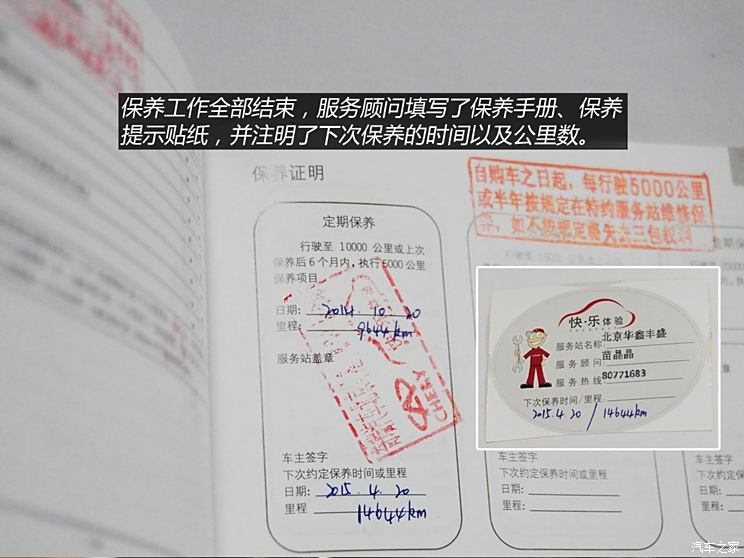 保养工作全部结束，服务顾问填写了保养手册、保养
提示贴纸，并注明了下次保养的时间以及公里数。
保养证明
自购车之日起，每行驶5000公里
或半年按规定在特约服务站维修保
养，如不按规定将失去三包权利
定期保养
行驶至 10000 公里或上次
保养后6个月内,执行5000公里
保养项目
日期: 2014.10.20
里程: 9644km
服务站盖章
CHERY
车主签字
下次约定保养时间或里程
日期: 2015.4.20
里程 14644km
快·乐体验
服务站名称: 北京华鑫丰盛
服务顾问: 苗晶晶
服务热线: 80771683
下次保养时间/里程:
2015.4.20 / 14644km
车主签字
下次约定保养时间或里程
日期:
里程:
车主签字
下次约定
日期:
里程:
汽车之家